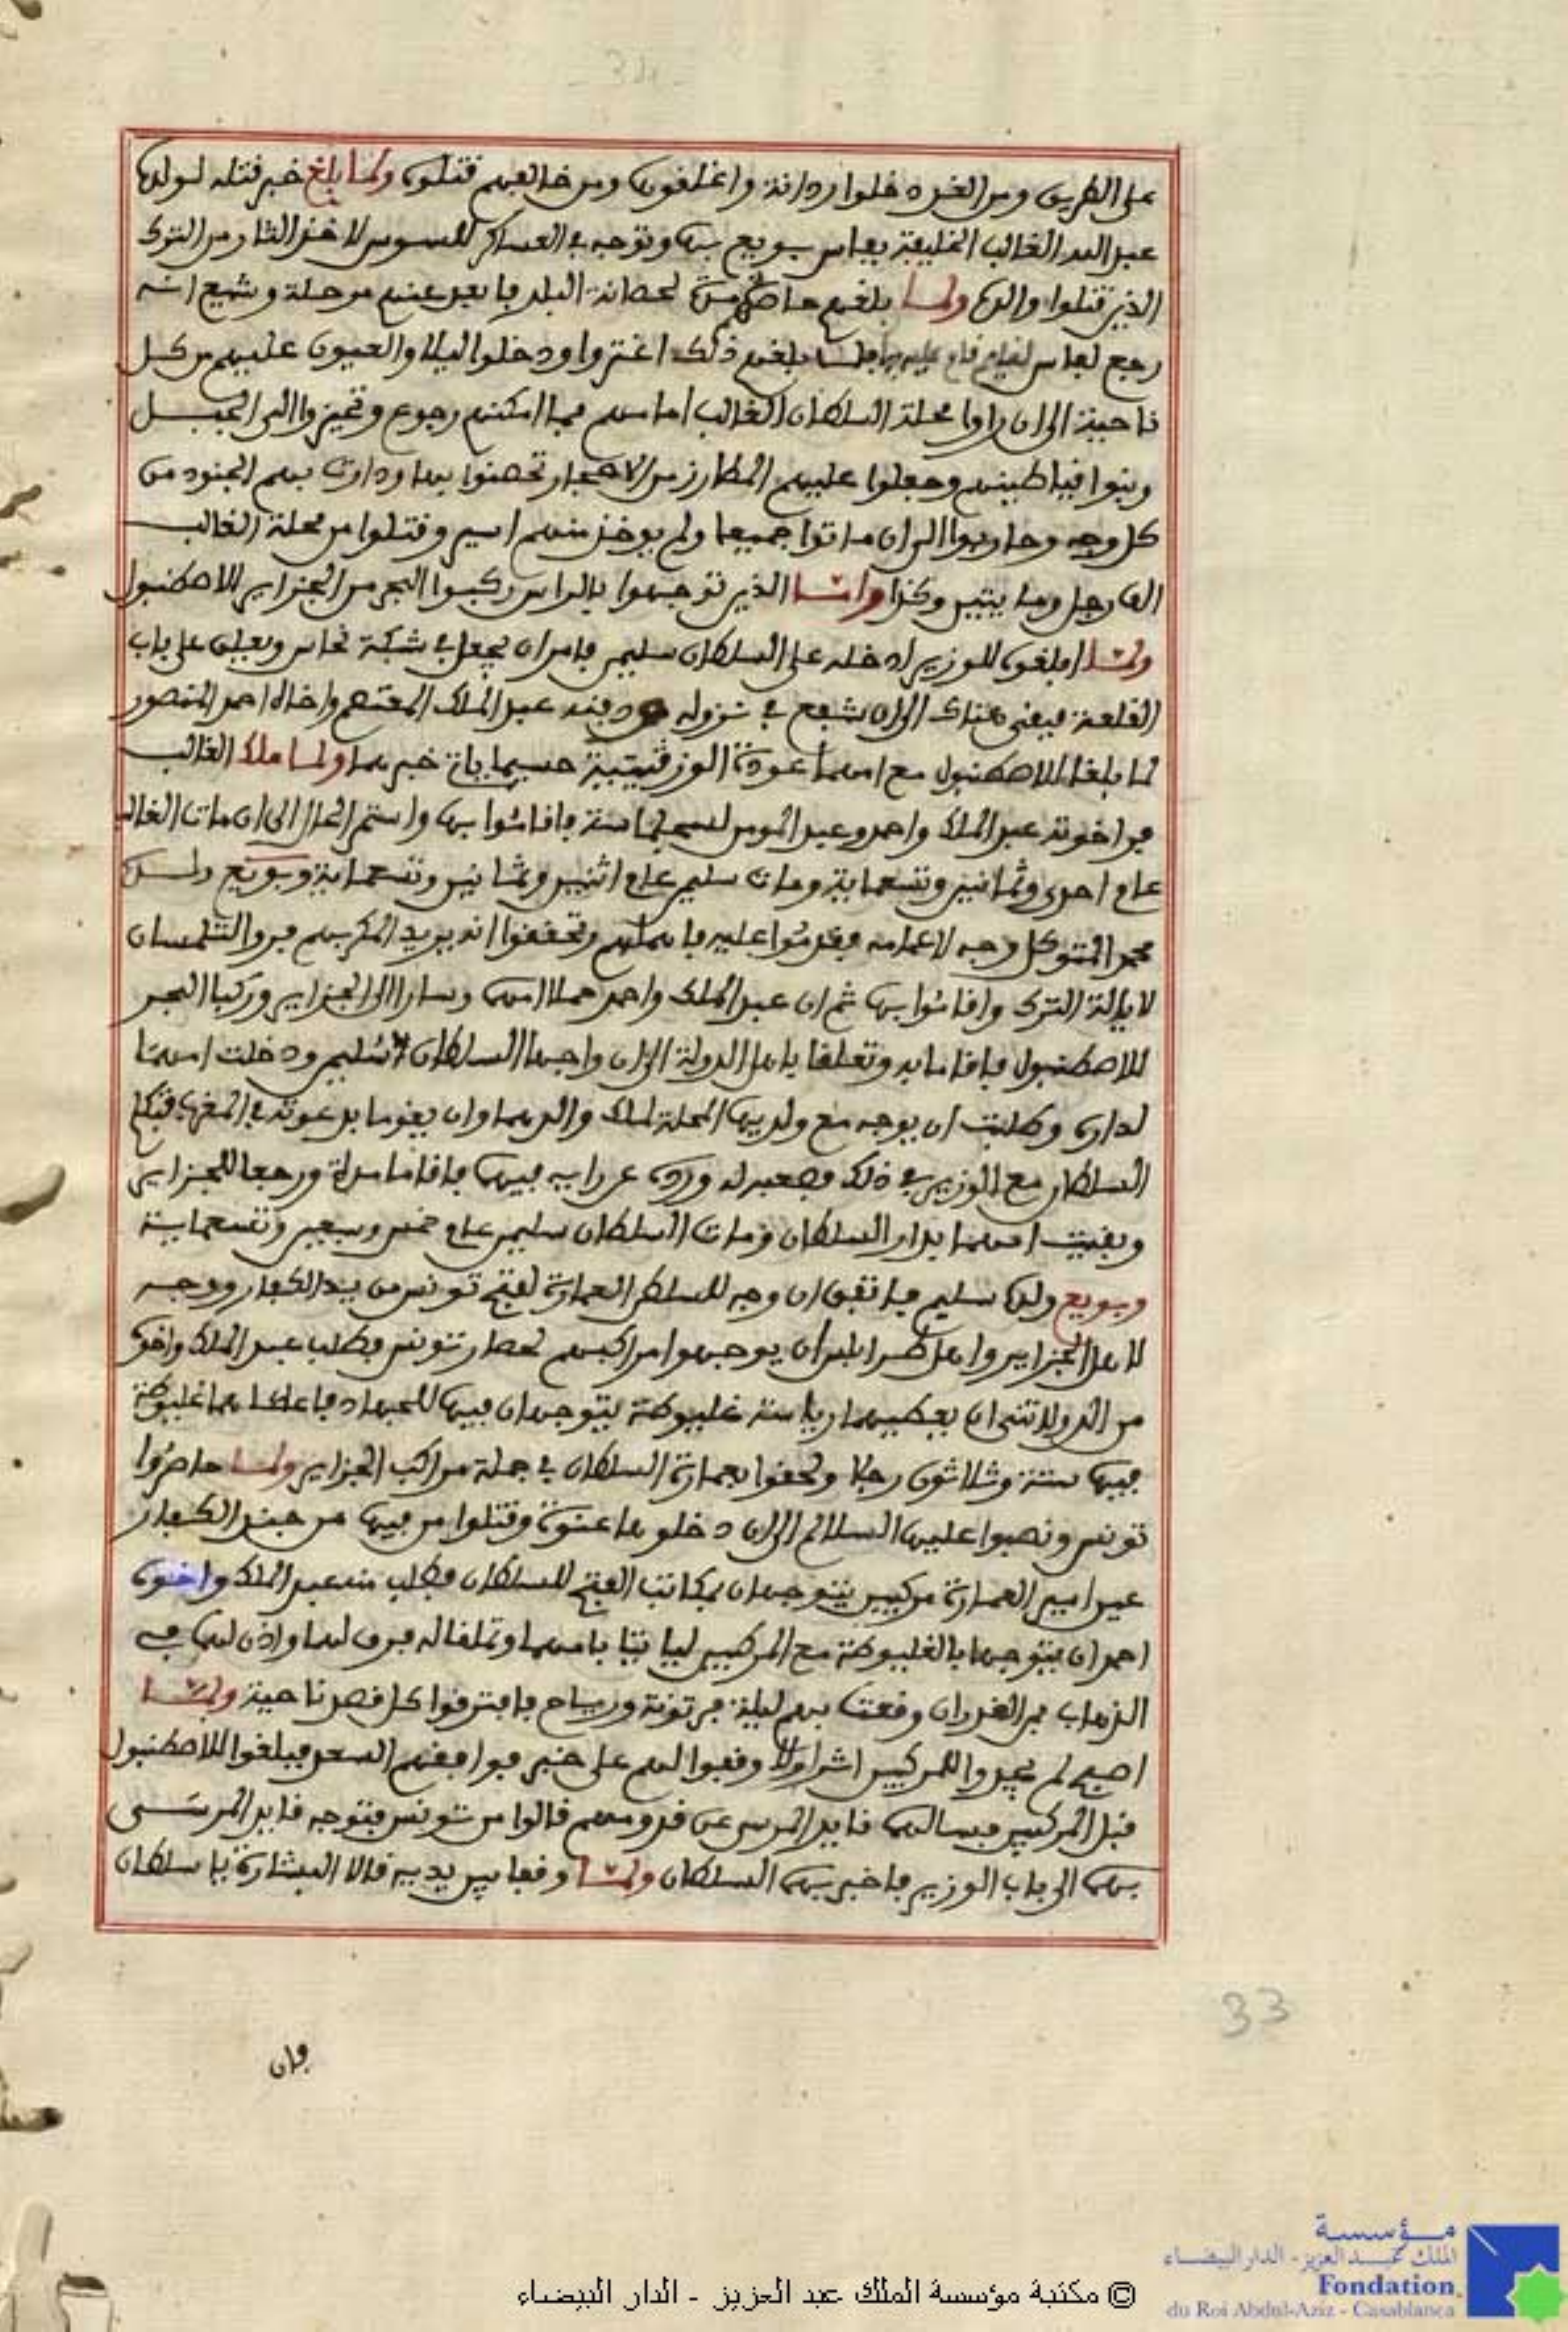 على الطريق ومن الغد دخلوا ردانة واغلقوها ومن خالفهم قتلوه ولما بلغ خبر قتله لولده
عبد الله الغالب الخليفة بفاس بويع بها وتوجه في العساكر للسوس لاخذ الثار من الترك
الذين قتلوا والده ولما بلغهم حاصرهم مدة لحصانة البلد فابعد عنهم مرحلة وشيع انه
رجع لفاس لقيام قام عليه بها فلما بلغهم ذلك اغتروا ودخلوا ليلا والعيون عليهم من كل
ناحية الى ان راوا محلة السلطان الغالب امامهم فما امكنهم رجوع وتحيزوا الى الجبل
وبنوا قياطينهم وجعلوا عليهم المطارز من الاحجار تحصنوا بها ودارت بهم الجنود من
كل وجه وحاربوا الى ان ماتوا جميعا ولم يوخذ منهم اسير وقتلوا من محلة الغالب
الف رجل وما يتين وكذا واما الذين توجهوا بالراس ركبوا البحر من الجزاير للاصطنبول
ولما ابلغوه للوزير ادخله على السلطان سليم فامر ان يجعل في شبكة نحاس ويعلق على باب
القلعة فبقي هناك الى ان شفع في نزوله ودفنه عبد الملك المعتصم واخاه احمد المنصور
لما بلغا للاصطنبول مع امهما عودة الوزقيتية حسبما ياتي خبرهما ولما ملك الغالب
فر اخوته عبد الملك واحمد وعبد المومن لسجلماسة فاقاموا بها واستمر الحال الى ان مات الغالب
عام احدى وثمانين وتسعماية ومات سليم عام اثنين وثمانين وتسعماية وبويع ولده
محمد المتوكل وجه لاعمامه فقدموا عليه باهلهم وتحققوا انه يريد المكر بهم فروا لتلمسان
لايالة الترك واقاموا بها ثم ان عبد الملك واحمد حملا امهما وسارا الى الجزاير وركبا البحر
للاصطنبول فاقاما به وتعلقا باهل الدولة الى ان واجها السلطان سليم ودخلت امهما
لداره وطلبت ان يوجه مع ولديها المحلة لملك والدهما وان يقوما بدعوته في المغرب فتكلم
السلطان مع الوزير في ذلك فصعبه له ورده عن رايه فيها فاقاما مدة ورجعا للجزاير
وبقيت امهما بدار السلطان ومات السلطان سليم عام خمس وسبعين وتسعماية
وبويع ولده سليم فاتفق ان وجه للسلطان العمارة لفتح تونس من يد الكفار ووجه
لاهل الجزاير واهل طرابلس ان يوجهوا مراكبهم لحصار تونس فطلب عبد الملك واخوه
من الدولاتي ان يعطيهما رياسة غليوطة يتوجهان فيها للجهاد فاعطاهما غليوطة
فيها ستة وثلاثون رجلا ولحقوا بعمارة السلطان في جملة مراكب الجزاير ولما حاصروا
تونس ونصبوا عليها السلالم الى ان دخلوها عنوة وقتلوا من فيها من جند الكفار
عين امير العمارة مركبين يتوجهان بمكاتب الفتح للسلطان فطلب منه عبد الملك واخوه
احمد ان يتوجها بالغليوطة مع المركبين لياتيا بامهما وتملقا له فرق لهما واذن لهما في
الذهاب فمن القدر ان وقعت بهم ليلة فرتونة ورياح فافترقوا كل قصد ناحية ولما
اصبح لم يجدوا للمركبين اثرا ولا وقفوا لهم على خبر فوافقهم السعد فبلغوا للاصطنبول
قبل المركبين فسالهما قايد المرسى عن قدومهم قالوا من تونس فتوجه قايد المرسى
بهما الى باب الوزير فاخبر بهما السلطان ولما وقفا بين يديه قالا البشارة يا سلطان
فان
33
مؤسسة
الملك عبد العزيز - الدار البيضاء
Fondation
du Roi Abdul-Aziz - Casablanca
© مكتبة مؤسسة الملك عبد العزيز - الدار البيضاء